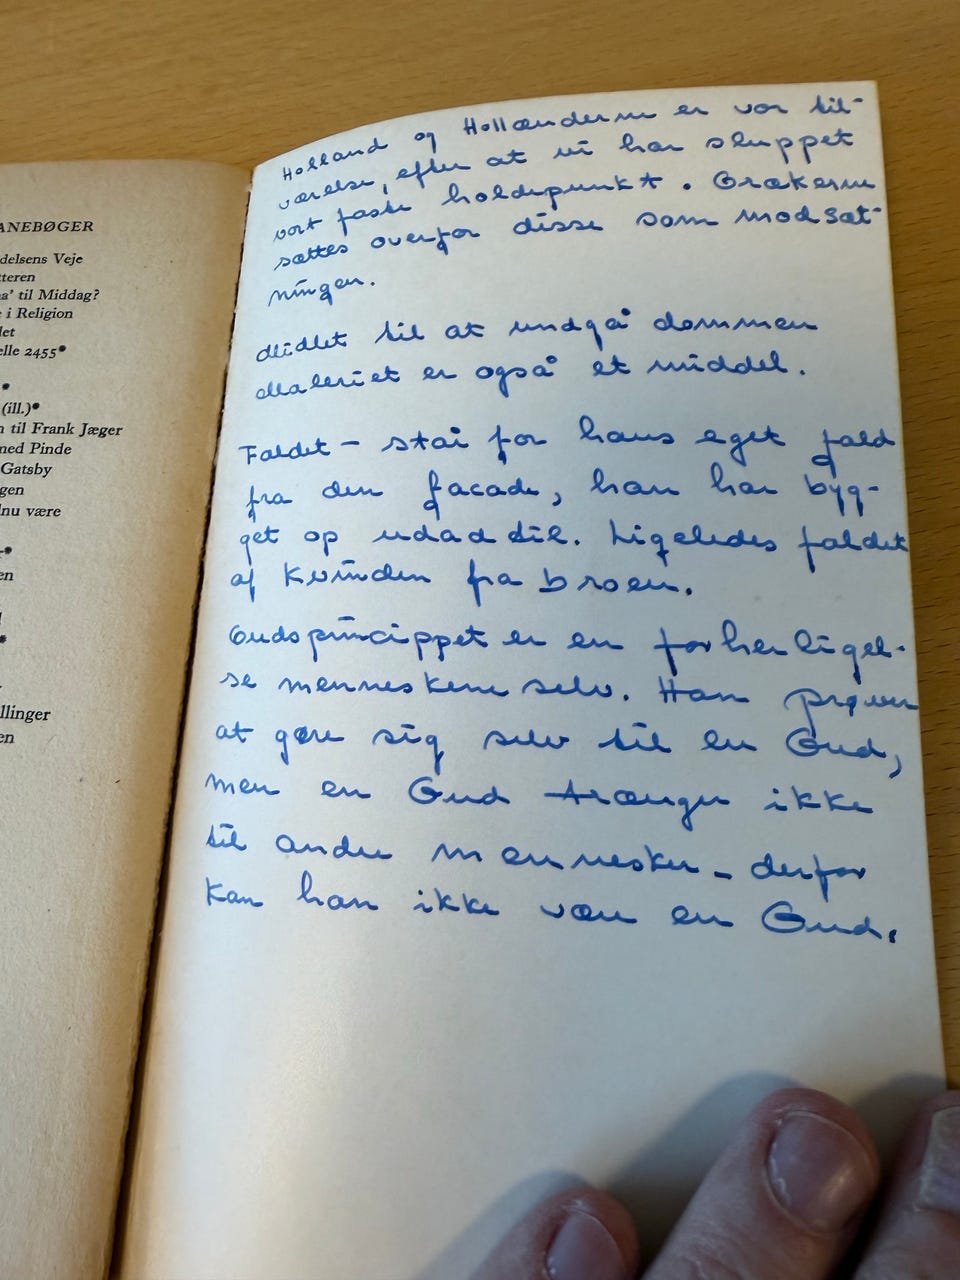 ANEBØGER
delsens Veje
tteren
na' til Middag?
e i Religion
let
elle 2455*
*
(ill.)*
n til Frank Jæger
med Pinde
Gatsby
gen
dnu være
-*
en
*
llinger
en
Holland og Hollænderne er vor til-
værelse, efter at vi har sluppet
vort faste holdepunkt. Grækerne
sættes overfor disse som modsæt-
ningen.
Midlet til at undgå dommen
Maleriet er også et middel.
Faldet - står for hans eget fald
fra den facade, han har byg-
get op udadtil. Ligeledes faldet
af kvinden fra broen.
Gudsprincippet er en forherligel-
se menneskene selv. Han prøver
at gøre sig selv til en Gud,
men en Gud trænger ikke
til andre mennesker - derfor
kan han ikke være en Gud.